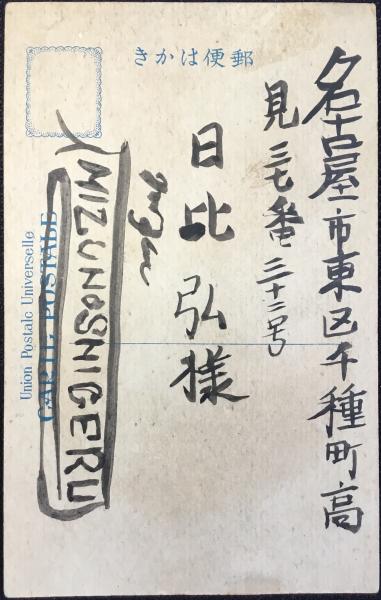 きかは便郵
名古屋市東区千種町高
見三七番三十二号
日比弘様
MIZUNOSHIGERU
Union Postale Universelle
CARTE POSTALE